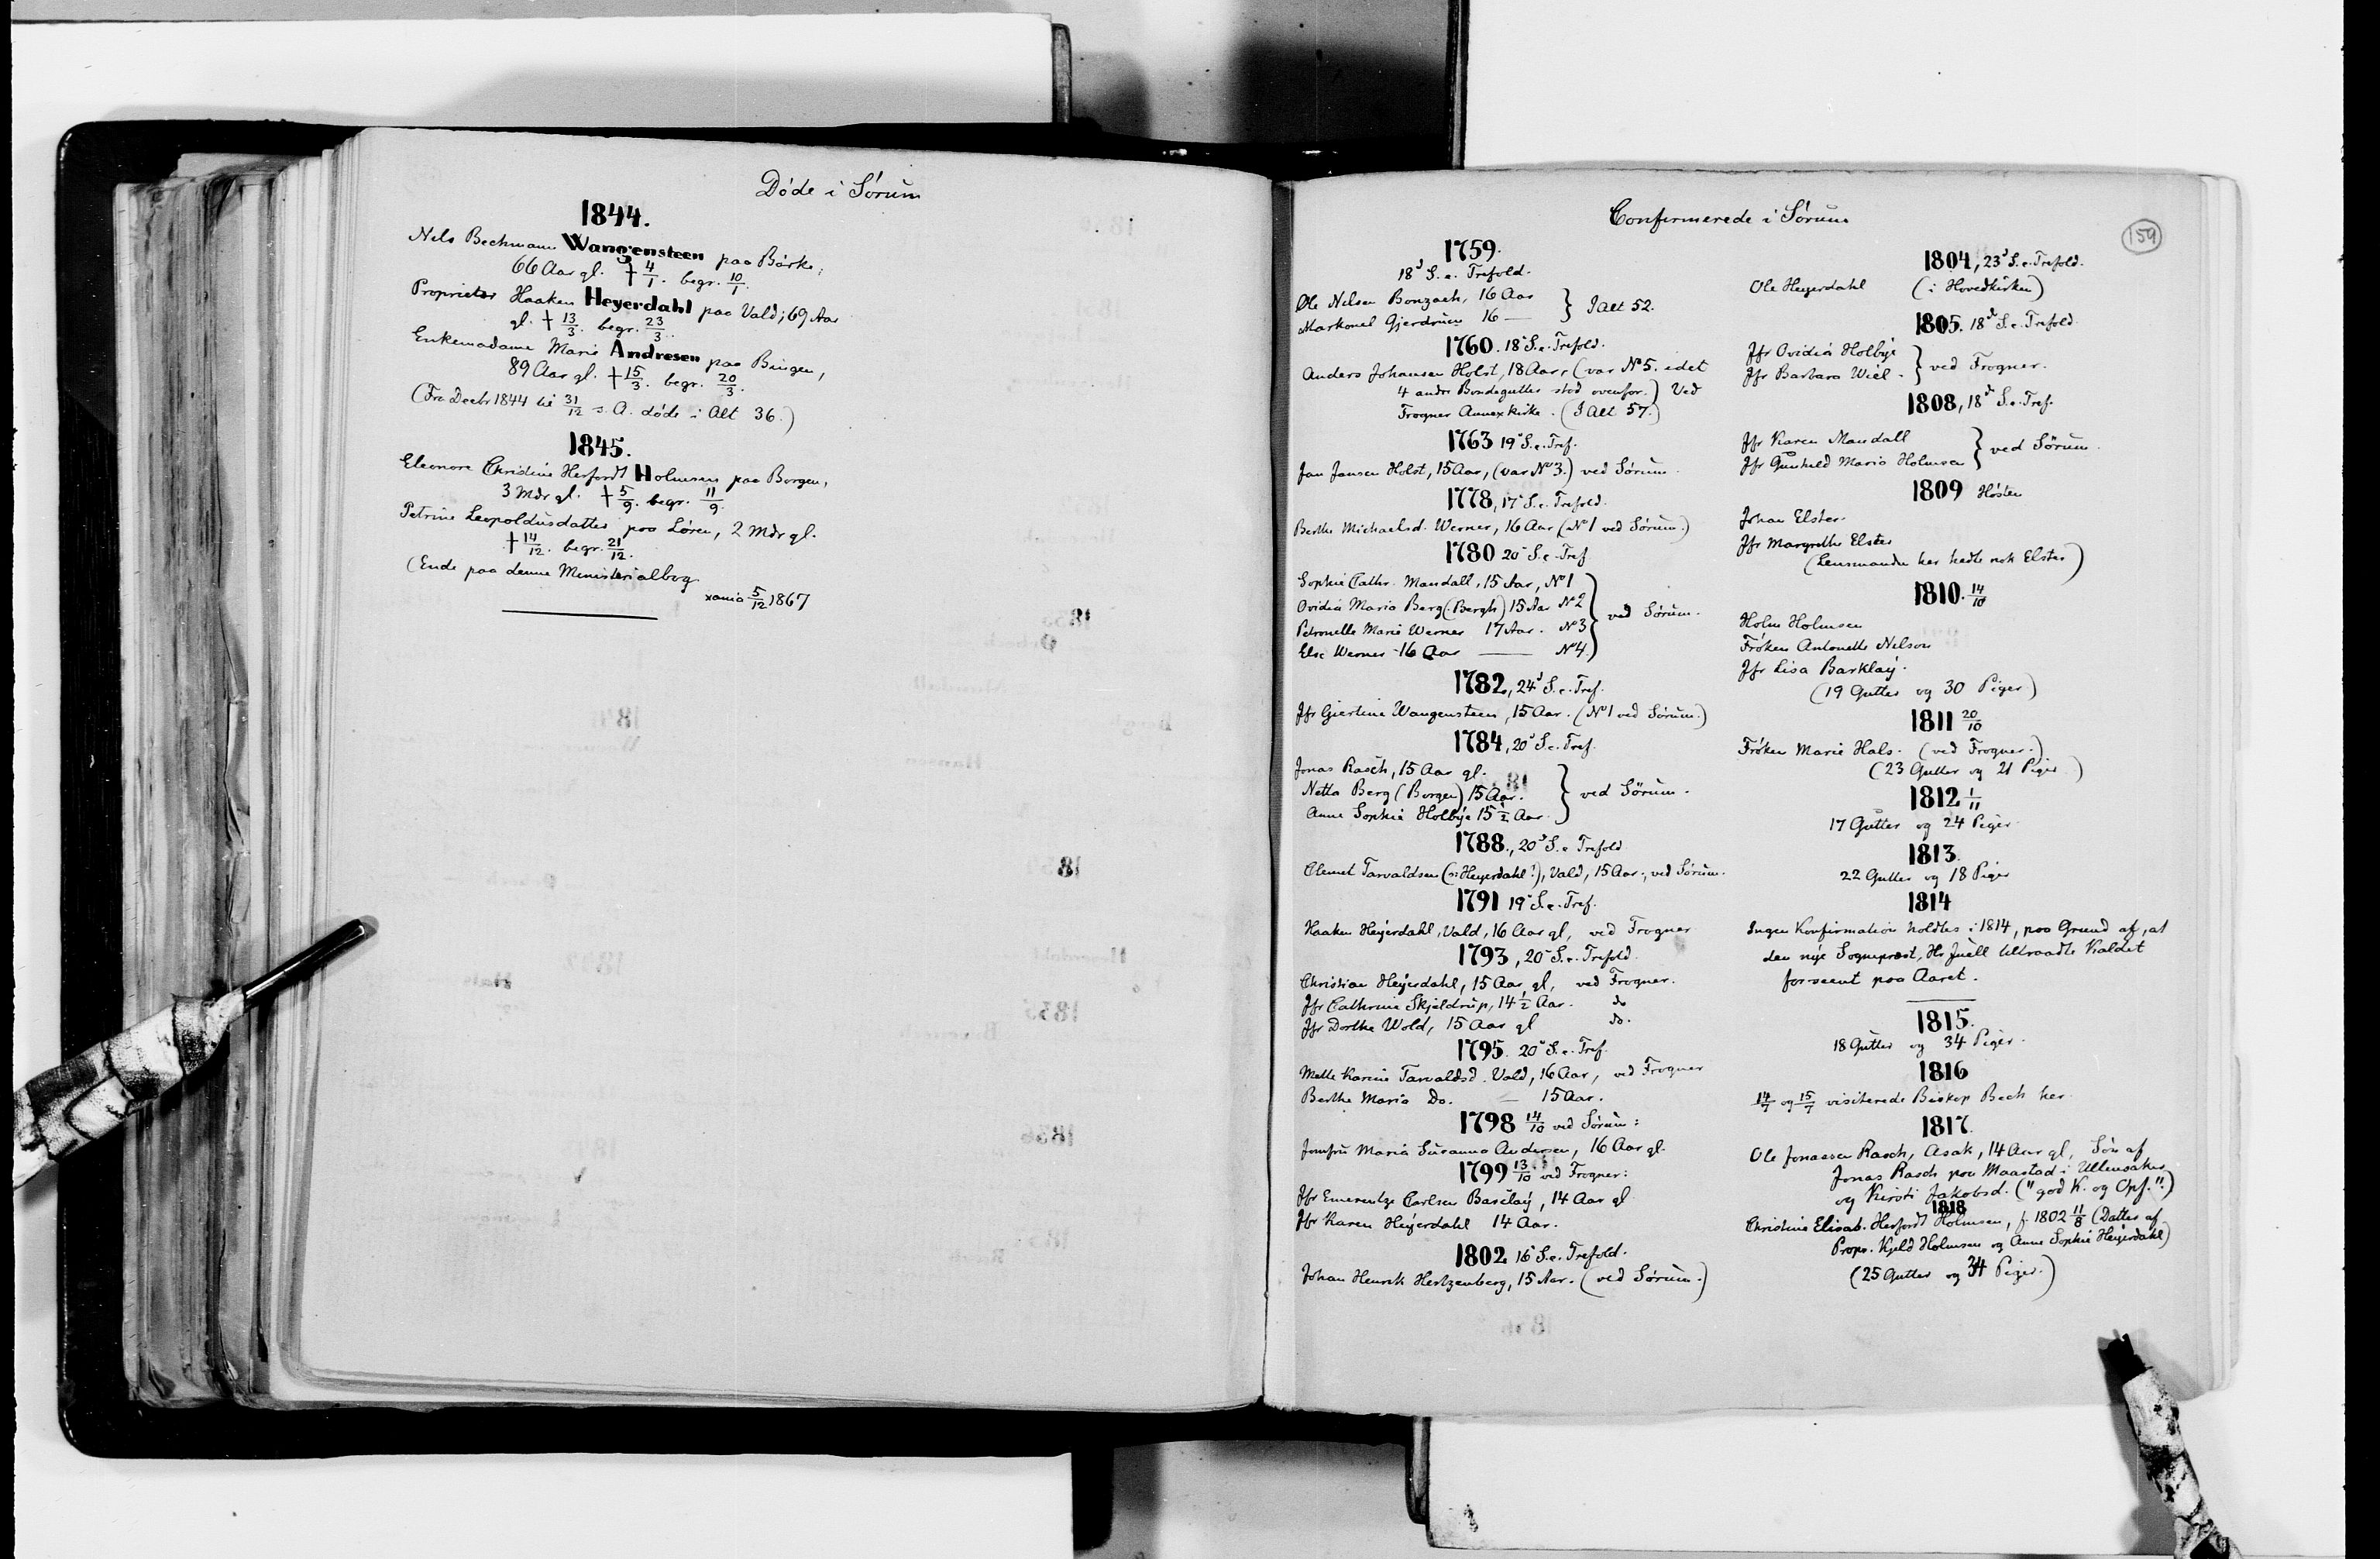 Döde i Sörum
1844.
Nels Bechmann Wangensteen paa Börke;
66 Aar gl. † 4/1. begr. 10/1.
Proprietær Haaken Heyerdahl paa Vald; 69 Aar
gl. † 13/3. begr. 23/3.
Enkemadame Marie Andresen paa Bingen,
89 Aar gl. † 15/3. begr. 20/3.
(Fra Decbr 1844 til 31/12 s. A. döde i Alt 36.)
1845.
Eleonore Christine Herfordt Holmsen paa Borgen,
3 Mdr gl. † 5/9. begr. 11/9.
Petrine Leopoldusdatter paa Lören, 2 Mdr gl.
† 14/12. begr. 21/12.
(Ende paa denne Ministerialbog.
xania 5/12 1867
159
Confirmerede i Sörum
1759.
18d S. e. Trefold.
Ole Nilsen Bonzach, 16 Aar
Markonel Gjerdrum 16 —
} I Alt 52.
1760. 18d S. e. Trefold.
Anders Johansen Holst, 18 Aar, (var No 5. idet
4 andre Bondegutter stod ovenfor.) Ved
Frogner Annexkirke. (I Alt 57.)
1763 19d S. e. Tref.
Jan Jansen Holst, 15 Aar, (var No 3.) ved Sörum.
1778, 17d S. e. Trefold.
Berthe Michaelsd. Werner, 16 Aar (No 1 ved Sörum.)
1780 20d S. e. Tref.
Sophie Cathr. Mandall, 15 Aar, No 1
Ovidia Maria Berg (: Bergh) 15 Aar No 2
Petronelle Marie Werner 17 Aar. No 3
Else Werner - 16 Aar — No 4.
} ved Sörum.
1782, 24d S. e. Tref.
Jfr Giertine Wangensteen, 15 Aar. (No 1 ved Sörum.)
1784, 20d S. e. Tref.
Jonas Rasch, 15 Aar gl.
Netta Berg (Borgen) 15 Aar.
Anne Sophie Holbye 15 1/2 Aar.
} ved Sörum.
1788., 20d S. e. Trefold
Clemet Tarvaldsen (ɔ: Heyerdahl!), Vald, 15 Aar., ved Sörum.
1791 19d S. e. Tref.
Haaken Heyerdahl, Vald, 16 Aar gl, ved Frogner
1793, 20d S. e. Trefold.
Christian Heyerdahl, 15 Aar gl, ved Frogner.
Jfr Cathrine Skjeldrup, 14 1/2 Aar. do
Jfr Dorthe Wold, 15 Aar gl do.
1795. 20d S. e. Tref.
Mette Karine Tarvaldsd. Vold, 16 Aar, ved Frogner
Berthe Maria Do. — 15 Aar.
1798 14/10 ved Sörum:
Jomfru Maria Susanna Andersen, 16 Aar gl.
1799 13/10 ved Frogner:
Jfr Emerentze Carlsen Barclay, 14 Aar gl
Jfr Karen Heyerdahl 14 Aar.
1802 16d S. e. Trefold.
Johan Henrik Hertzenberg, 15 Aar. (ved Sörum.)
1804, 23d S. e. Trefold.
Ole Heyerdahl (i Hovedkirken)
1805. 18de S. e. Trefold
Jfr Ovidia Holbye
Jfr Barbara Wiel.
} ved Frogner.
1808, 18de S. e. Tref.
Jfr Karen Mandall
Jfr Gunhild Maria Holmsen
} ved Sörum.
1809 Hösten
Johan Elster.
Jfr Margrethe Elster
(Lensmanden her hedte nok Elster)
1810. 14/10
Holm Holmsen
Fröken Antonette Nelson
Jfr Lisa Barklay.
(19 Gutter og 30 Piger)
1811 20/10
Fröken Marie Hals. (ved Frogner.)
(23 Gutter og 21 Piger)
1812 1/11
17 Gutter og 24 Piger
1813.
22 Gutter og 18 Piger
1814
Ingen Konfirmation holdtes i 1814, paa Grund af, at
den nye Sognepræst, Hr Juell tiltraadte Kaldet
for seent paa Aaret.
1815.
18 Gutter og 34 Piger.
1816
14/7 og 15/7 visiterede Biskop Bech her.
1817.
Ole Jonassen Rasch, Asak, 14 Aar gl, Sön af
Jonas Rasch paa Maastad i Ullensaker
og Kirsti Jakobsd. ("god K. og Opf.")
1818
Christine Elisab. Herfordt Holmsen, f. 1802 11/8 (Datter af
Propr. Kjeld Holmsen og Anne Sophie Heyerdahl)
(25 Gutter og 34 Piger.)